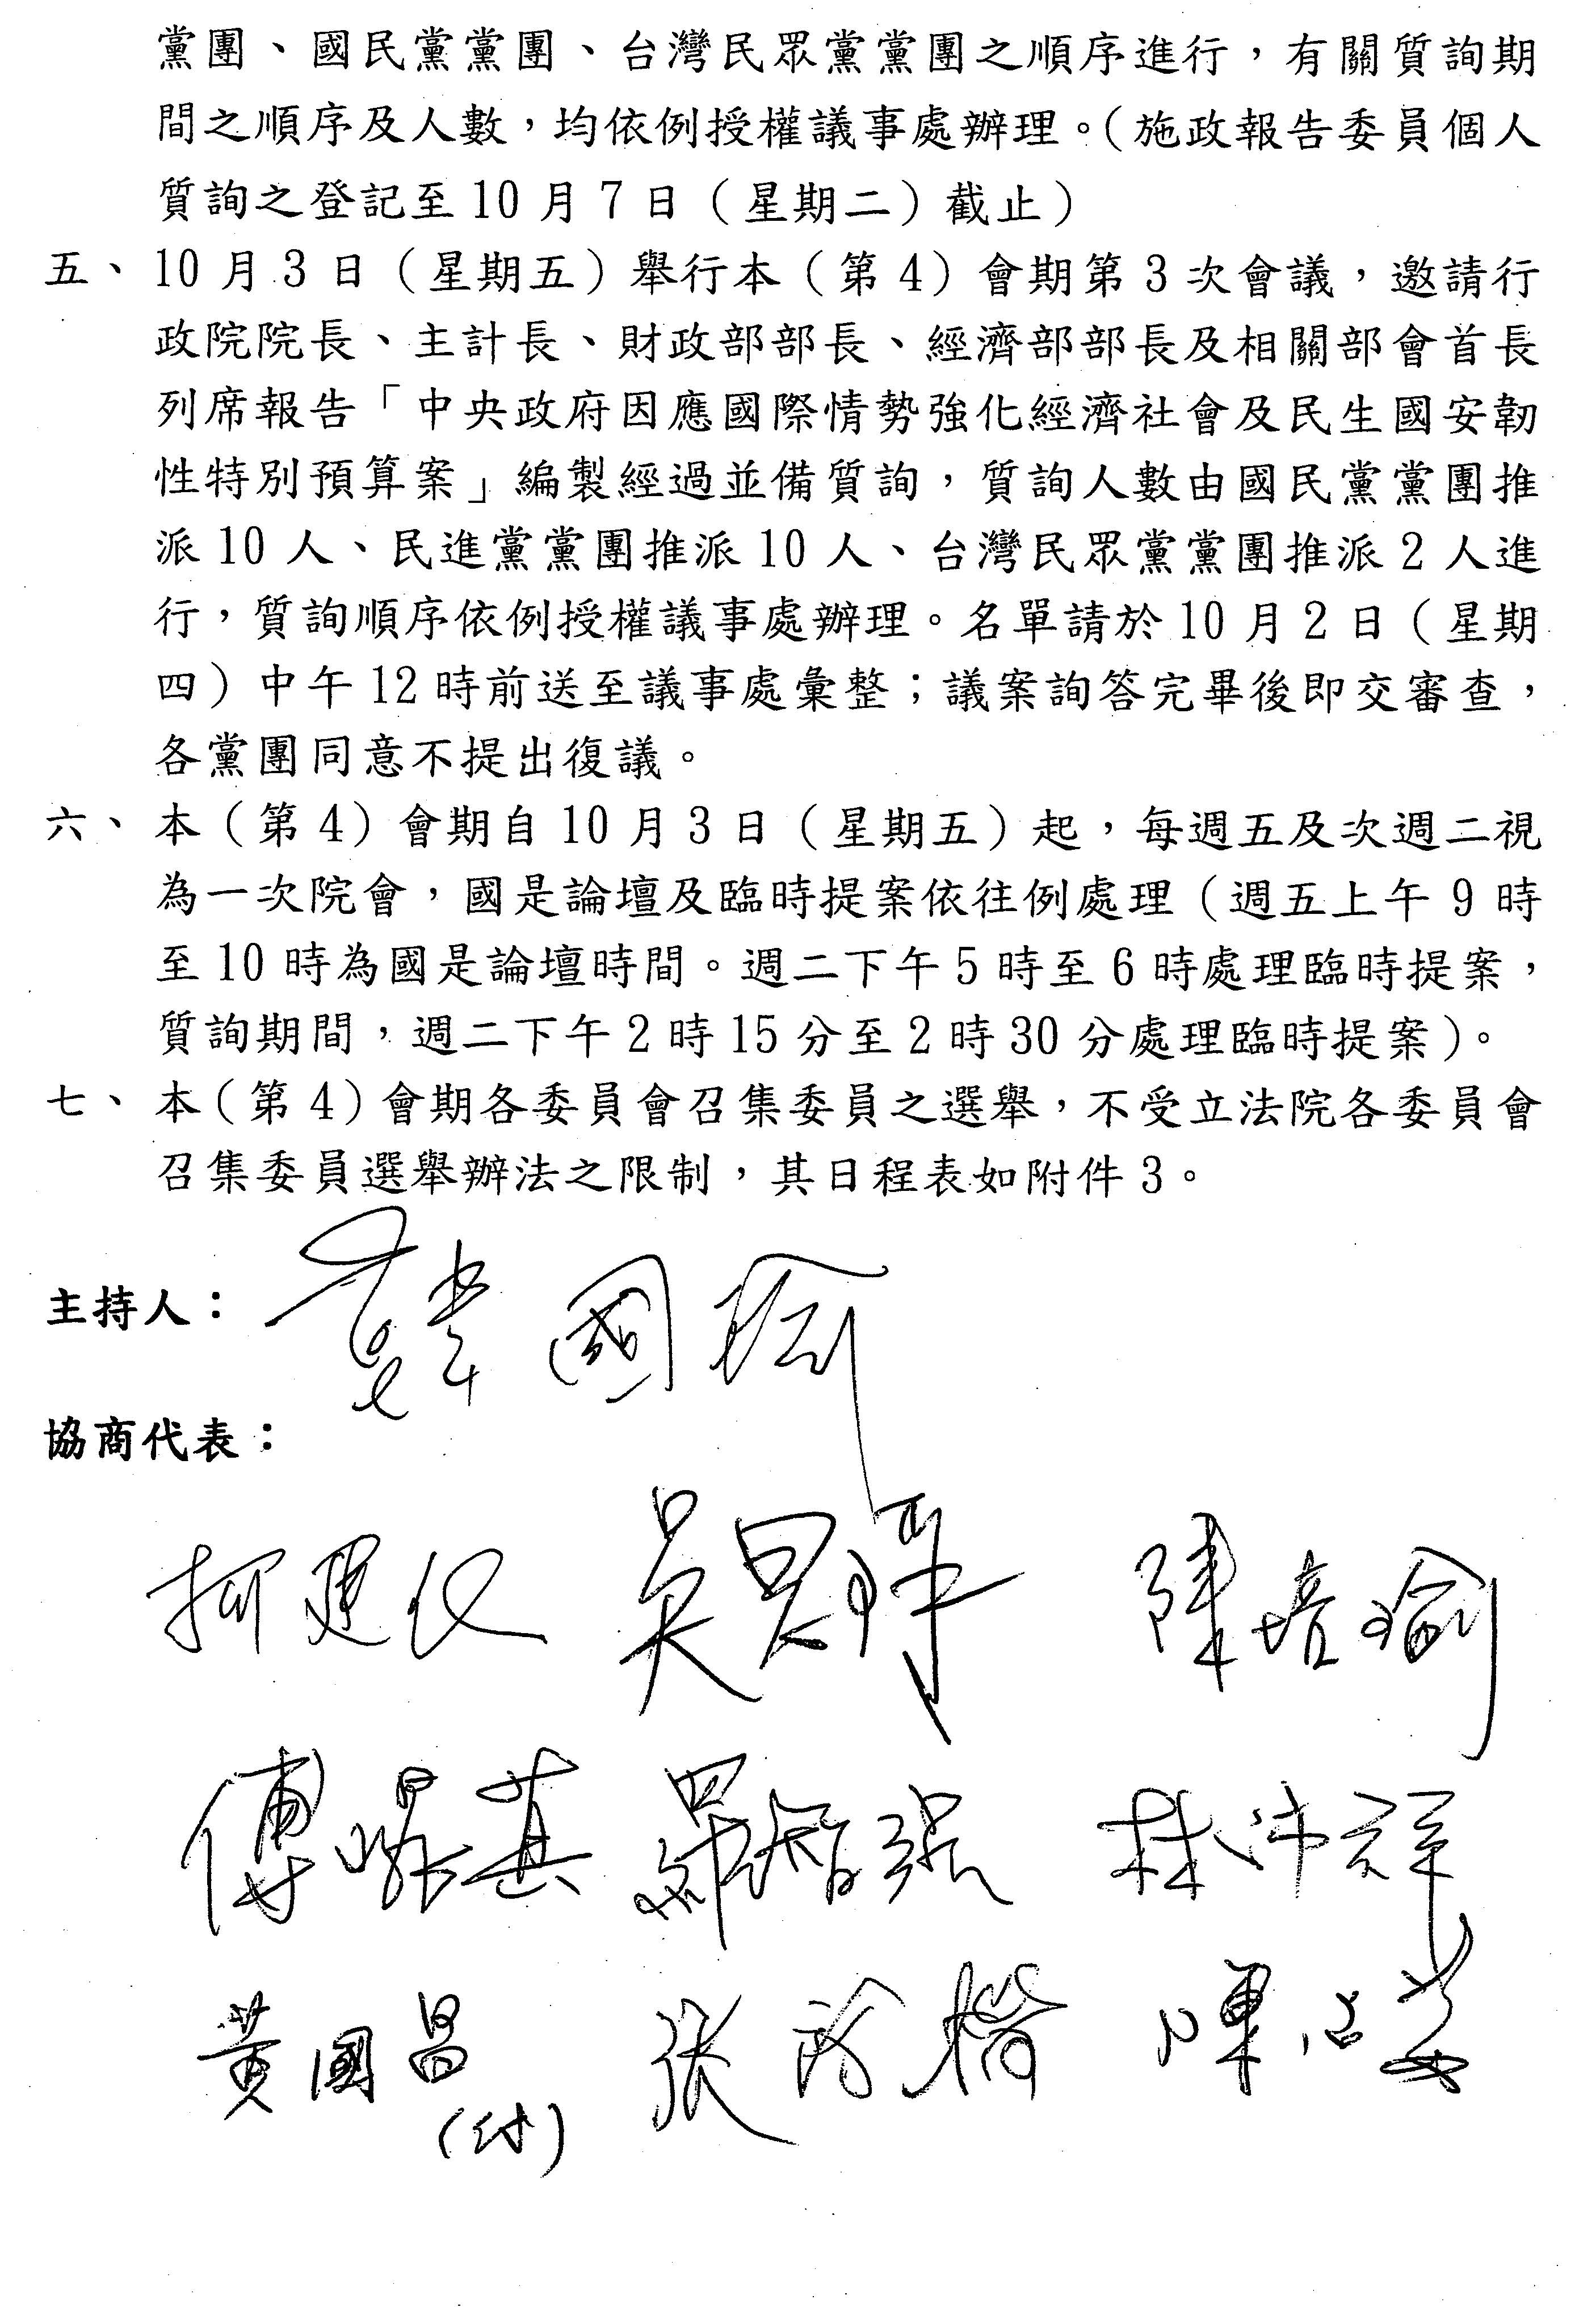 黨團、國民黨黨團、台灣民眾黨黨團之順序進行，有關質詢期
間之順序及人數，均依例授權議事處辦理。（施政報告委員個人
質詢之登記至10月7日（星期二）截止）
五、10月3日（星期五）舉行本（第4）會期第3次會議，邀請行
政院院長、主計長、財政部部長、經濟部部長及相關部會首長
列席報告「中央政府因應國際情勢強化經濟社會及民生國安韌
性特別預算案」編製經過並備質詢，質詢人數由國民黨黨團推
派10人、民進黨黨團推派10人、台灣民眾黨黨團推派2人進
行，質詢順序依例授權議事處辦理。名單請於10月2日（星期
四）中午12時前送至議事處彙整；議案詢答完畢後即交審查，
各黨團同意不提出復議。
六、本（第4）會期自10月3日（星期五）起，每週五及次週二視
為一次院會，國是論壇及臨時提案依往例處理（週五上午9時
至10時為國是論壇時間。週二下午5時至6時處理臨時提案，
質詢期間，週二下午2時15分至2時30分處理臨時提案）。
七、本（第4）會期各委員會召集委員之選舉，不受立法院各委員會
召集委員選舉辦法之限制，其日程表如附件3。
主持人：韓國瑜
協商代表：
柯建銘 吳思瑤 陳培瑜
傅崐萁 羅智強 林沛祥
黃國昌 張啓楷 陳昭姿
（代）